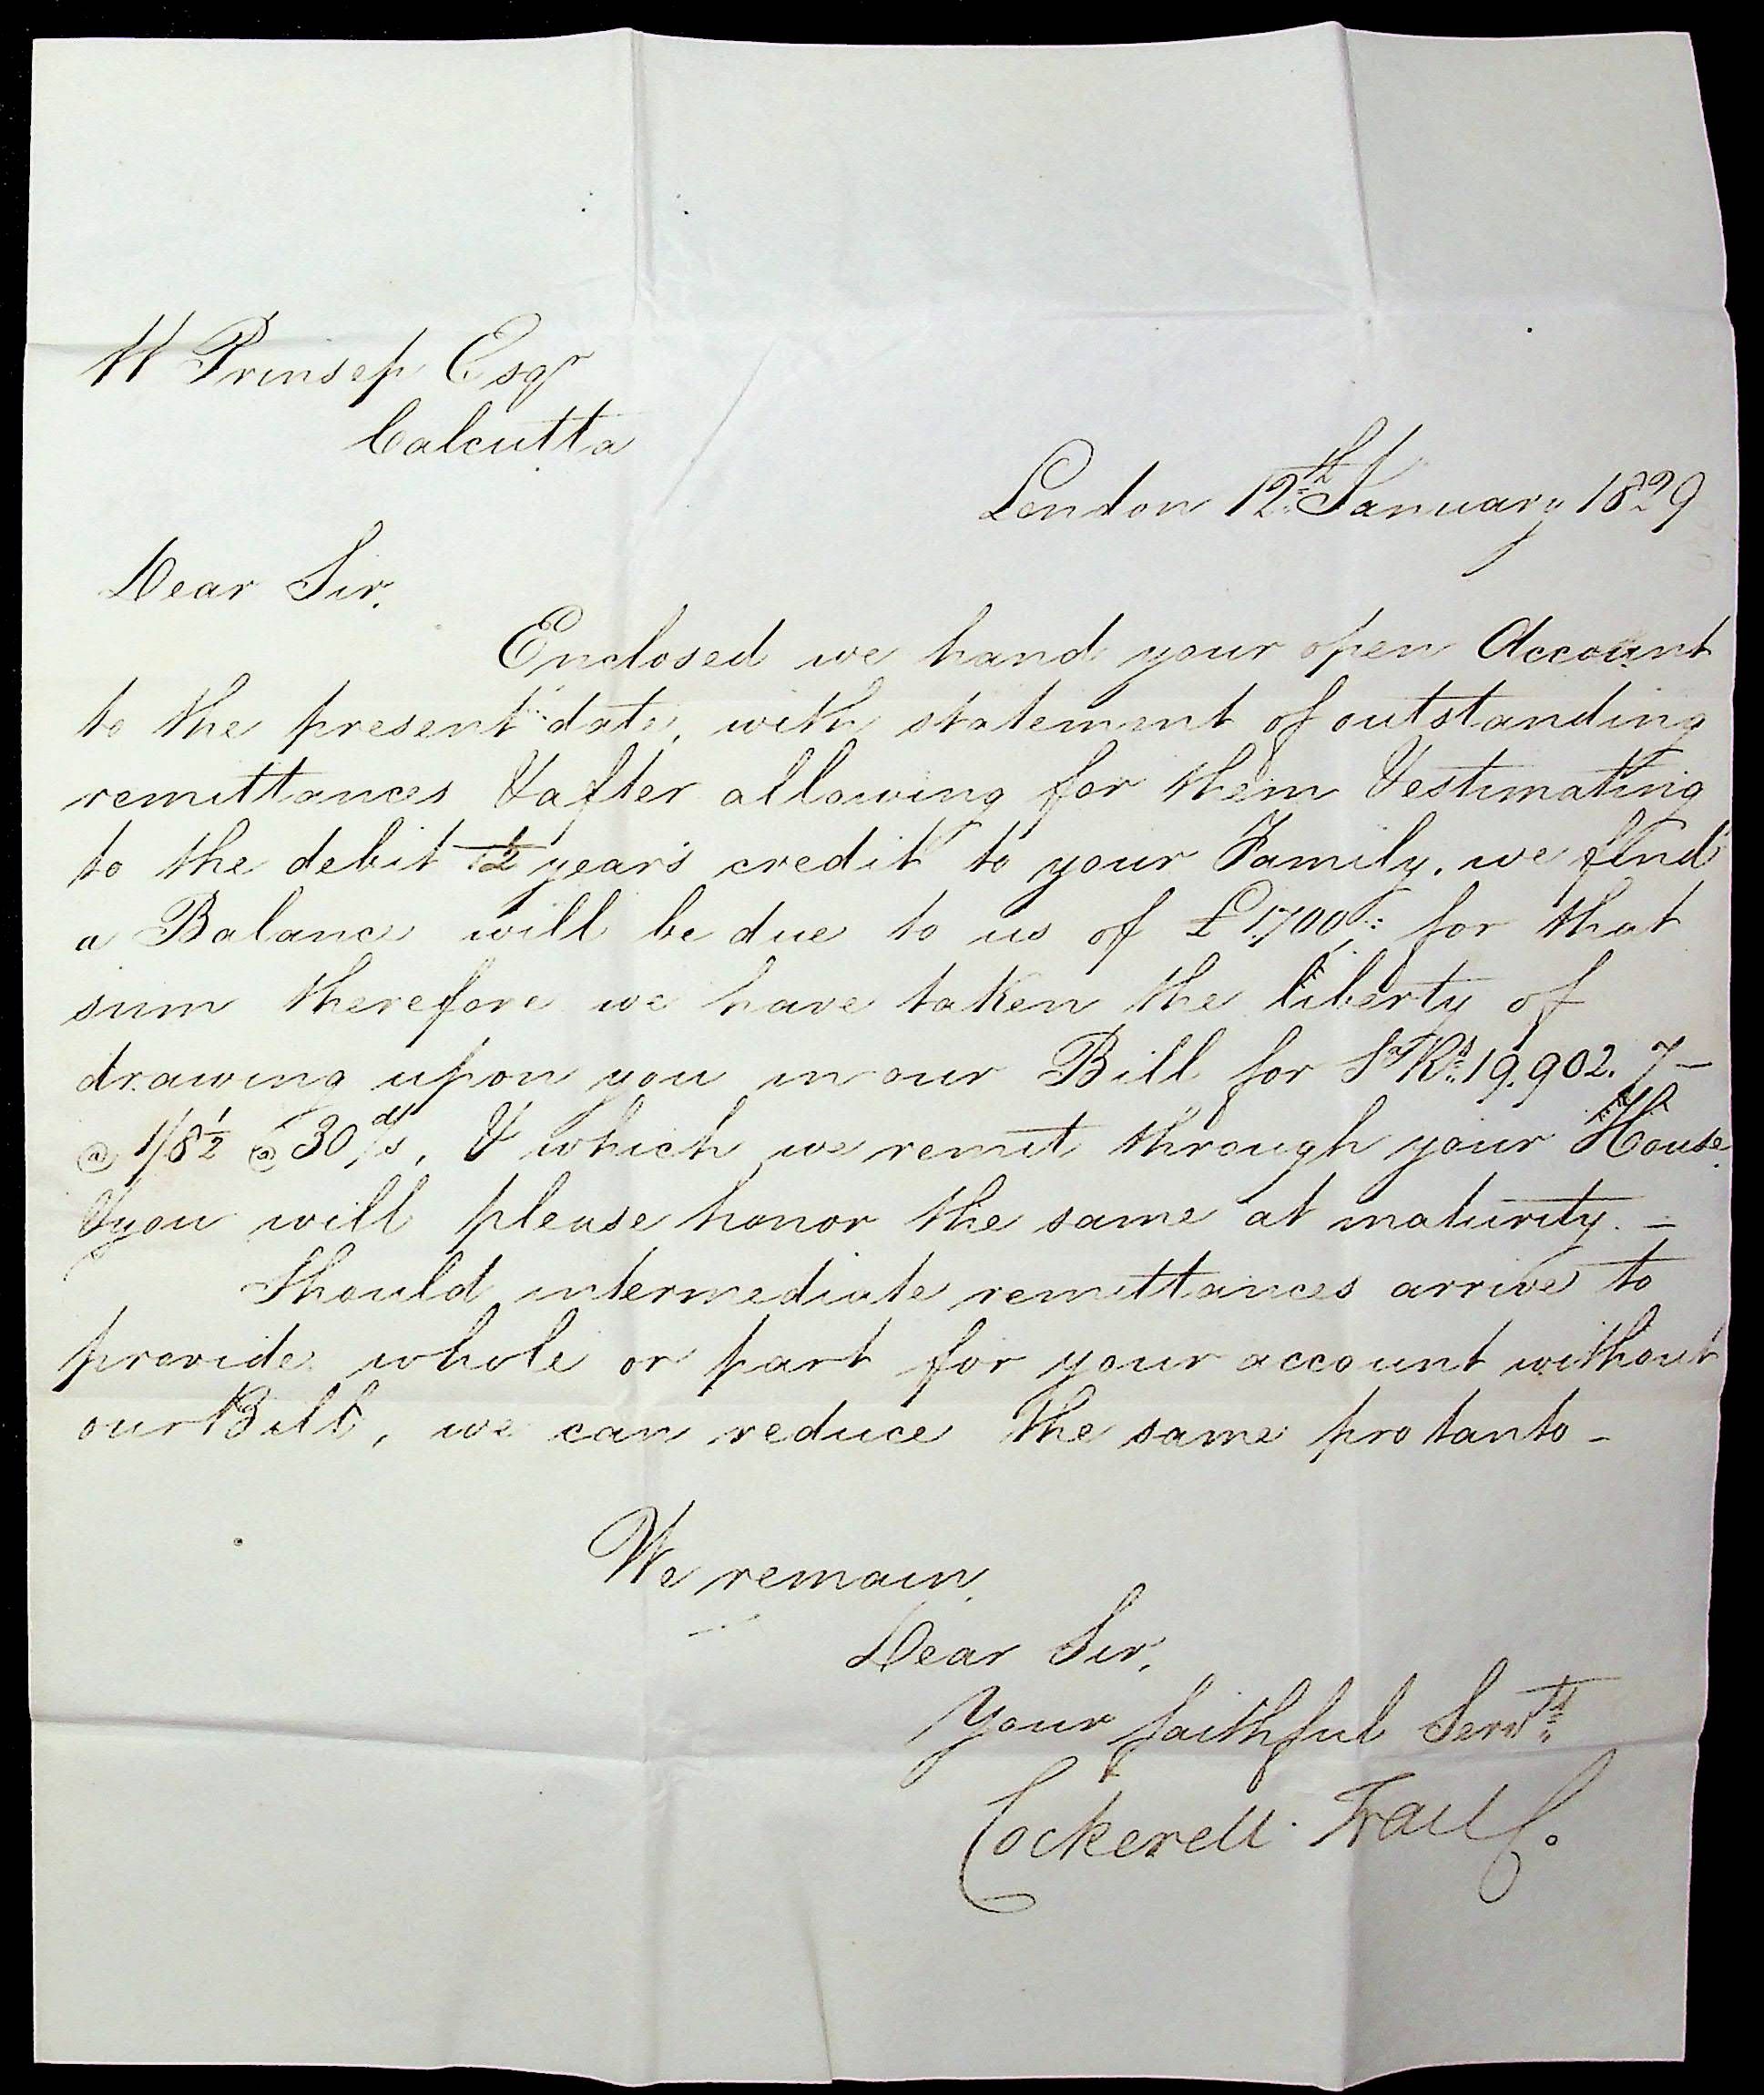 W Prinsep Esqr
Calcutta
London 12th January 1829
Dear Sir.
Enclosed we hand your open Account
to the present date, with statement of outstanding
remittances & after allowing for them & estimating
to the debit 1/2 year's credit to your Family. we find
a Balance will be due to us of £1,700 for that
sum therefore we have taken the liberty of
drawing upon you in our Bill for Sa Rs 19,902. 7 –
@ 1/8½ @ 30 d/s, & which we remit through your House
& you will please honor the same at maturity. –
Should intermediate remittances arrive to
provide whole or part for your account without
our Bill, we can reduce the same pro tanto –
We remain,
Dear Sir,
Your faithful Servts
Cockerell Trail Co.